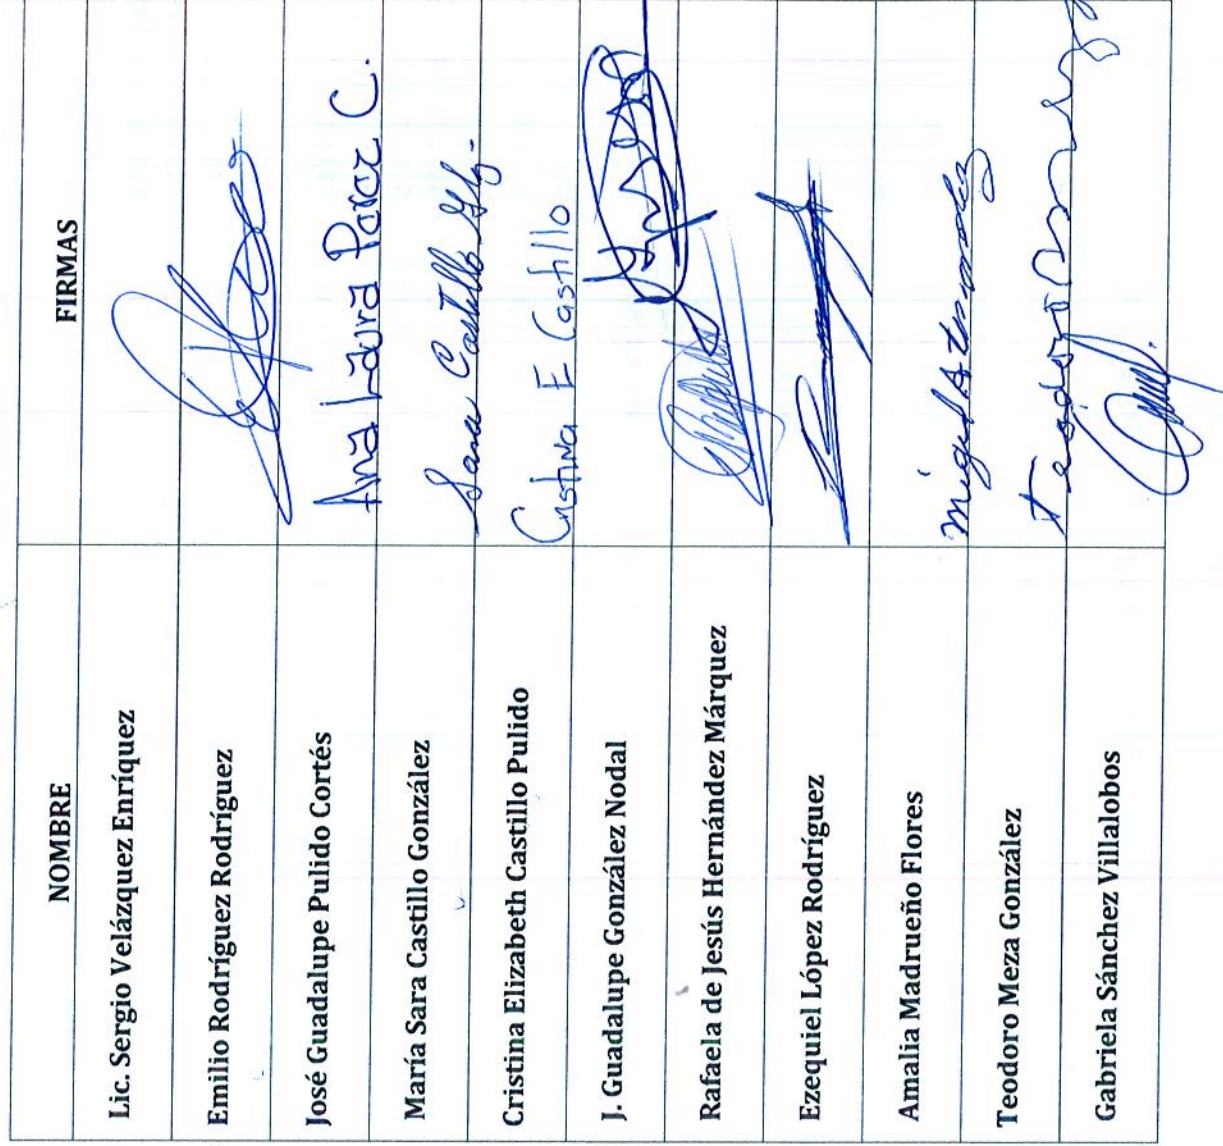 NOMBRE FIRMAS
Lic. Sergio Velázquez Enríquez
Emilio Rodríguez Rodríguez
José Guadalupe Pulido Cortés Ana Laura Perez C.
María Sara Castillo González Sara Castillo Glz.
Cristina Elizabeth Castillo Pulido Cristina E Castillo
J. Guadalupe González Nodal
Rafaela de Jesús Hernández Márquez
Ezequiel López Rodríguez
Amalia Madrueño Flores Miguel A
Teodoro Meza González Teodoro
Gabriela Sánchez Villalobos